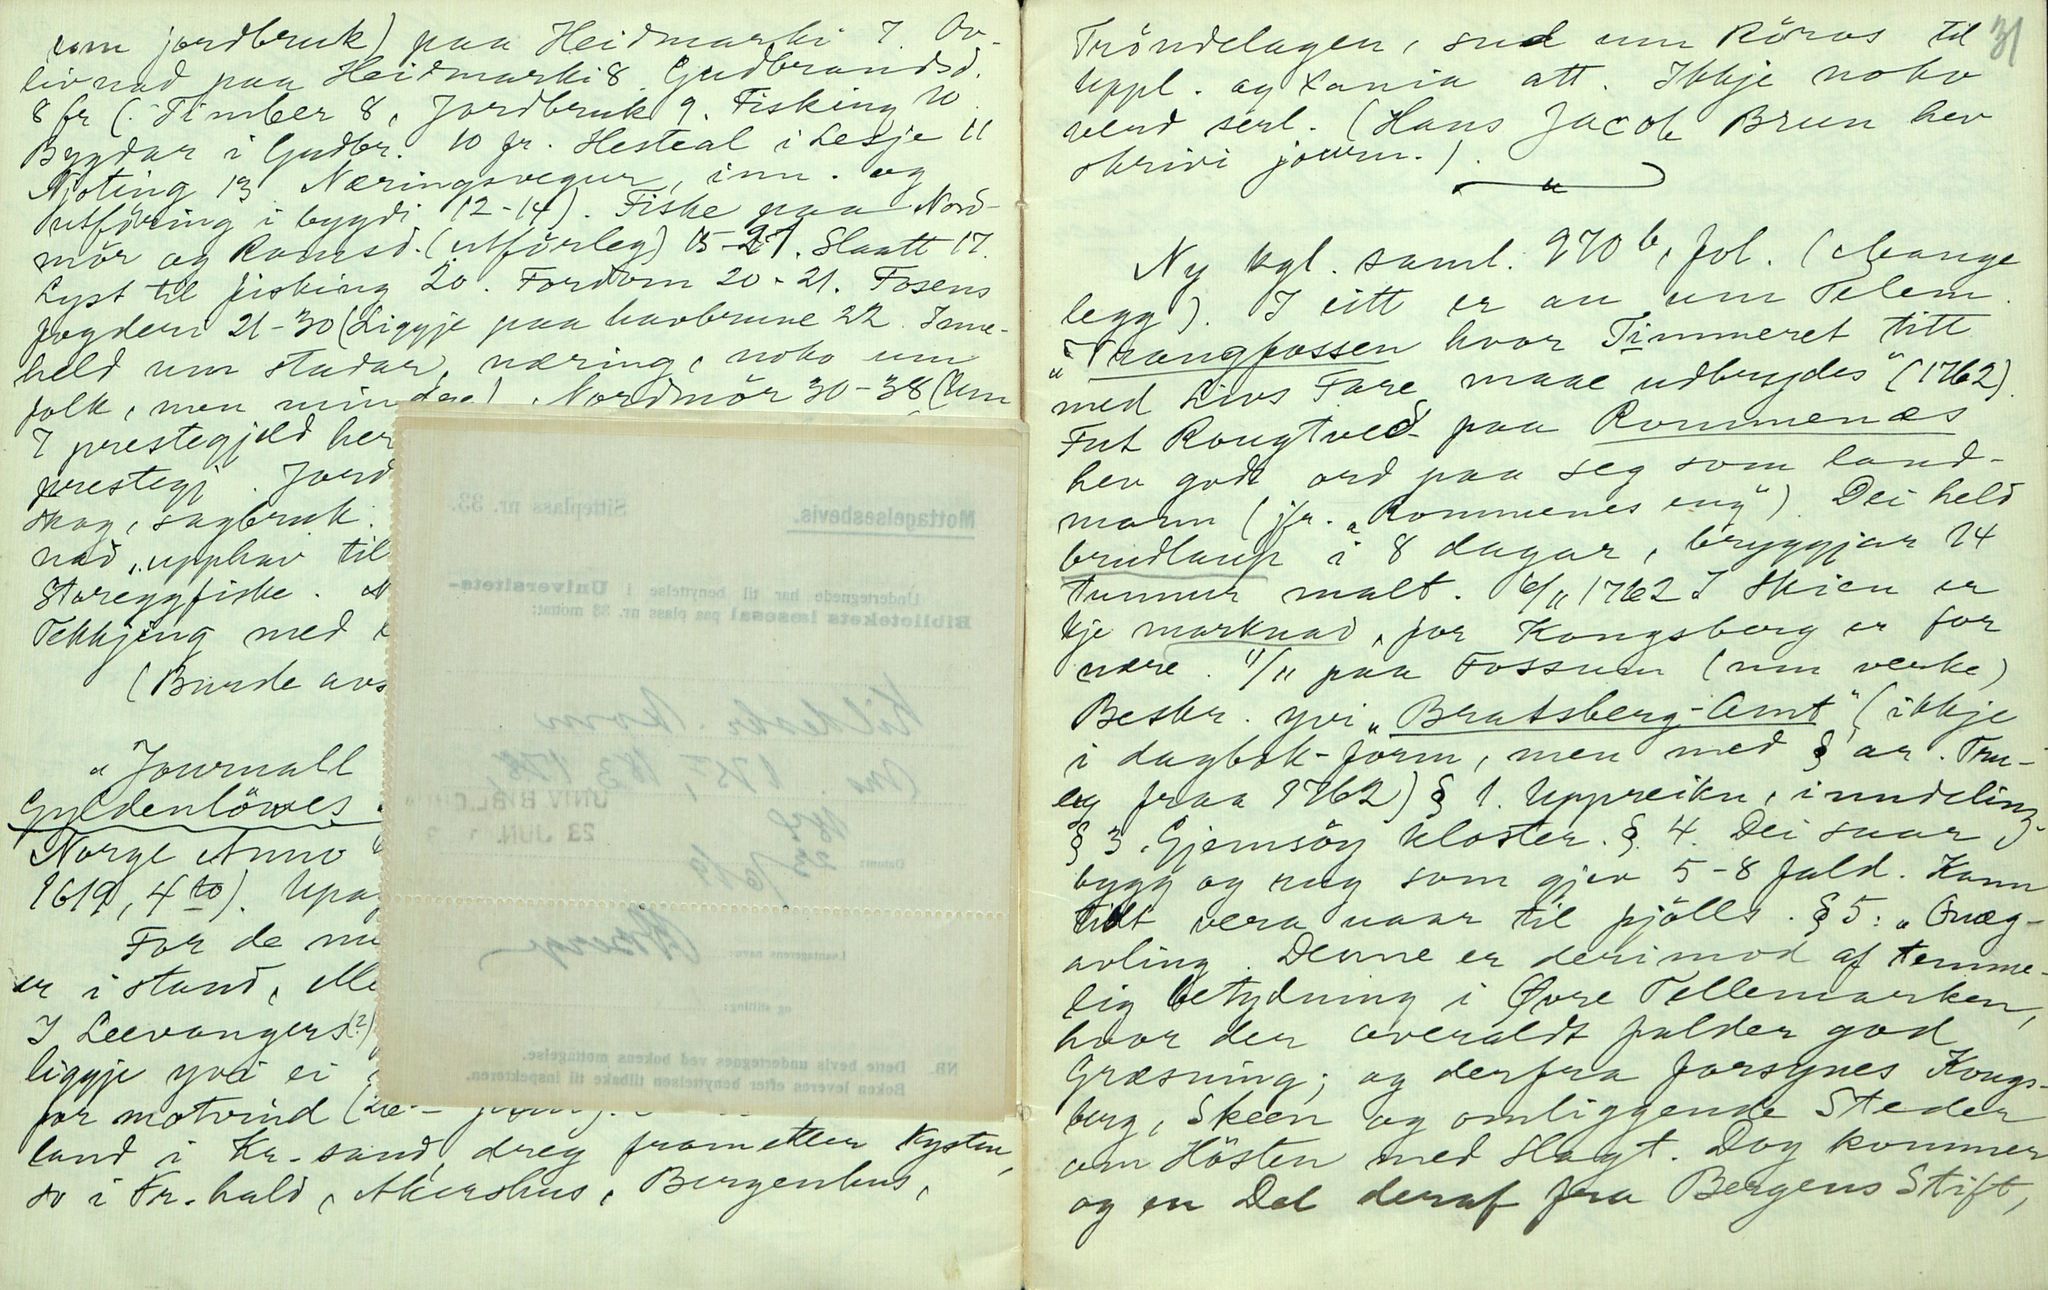 som jordbruk) paa Heidmarki 7. Ov-
livnad paa Heidmarki 8. Gudbrandsd.
8 fr (: Timber 8, Jordbruk 9. Fisking 10
Bygdar i Gudbr. 10 fr. Hesteal i Lesje 11
13 Næringsvegur, inn- og
utföring i bygdi 12-14). Fiske paa Nord-
mör og Romsd. (utförleg) 15-21. Slaatt 17.
Lyst til fisking 20. Fordom 20-21. Fosens
fogderi 21-30 (Liggje paa havbrune 22. Inne-
held um stadar, næring, noko um
folk, men mindre). Nordmör 30-38 (Um
7 prestegjeld her
prestegj. Jord
skog, sagbruk.
nad, upphav til
Storeggfiske.
Tekkjing med
(Burde avs
"Journall
Gyldenlöwes
Norge Anno
1619, 4to). Upag
For de
er i stand,
I Leevangers(?)
liggje yvi ei
for motvind
land i Kr-sand, dreg frametter Kysten,
so i Fr.hald, Akershus, Bergenhus,
Mottagelsesbevis. Sitteplass nr. 33.
Undertegnede har til benyttelse i Universitets-
Bibliotekets læsesal paa plass nr. 33 mottat:
Kildeskr.
UNIV. BIBL.
23 JUN. 1
Datum: 23/6 19
Laantagerens navn:
og stilling:
NB. Dette bevis undertegnes ved bokens mottagelse.
Boken leveres efter benyttelsen tilbake til inspektøren.
31
Tröndelagen, sud um Röros til
Uppl. og Xania att. Ikkje noko
verd serl. (Hans Jacob Brun hev
skrivi journ.).
Ny kgl. saml. 970 b, fol. (Mange
legg). I eitt er au um Telem.
"Trangfossen hvor Timmeret titt
med Livs Fare maae udbrydes" (1762).
Fut Rougtved paa Rommenæs
hev godt ord paa seg som land-
mann (jfr. "Rommenes eng"). Dei held
brudlaup i 8 dagar, bryggjar 14
tunnur malt. 6/11 1762 I Skien er
kje marknad, for Kongsberg er for
nære. 11/11 paa Fossum (um verke)
Beskr. yvi "Bratsberg-Amt" (ikkje
i dagbok-form, men med § ar. Tru-
leg fraa 1762) § 1. Uppreikn, inndeling.
§ 3. Gjemsöy kloster. § 4. Dei saar
bygg og rug som gjev 5-8 fald. Kann
tidt vera uaar til fjölls. § 5: "Qvæg-
avling. Denne er derimod af temme-
lig betydning i Øvre Tellemarken,
hvor der overaldt falder god
Græsning; og derfra forsynes Kongs-
berg, Skeen og omliggende Steder
om Hösten med Slagt. Dog kommer
og en Del deraf fra Bergens Stift,